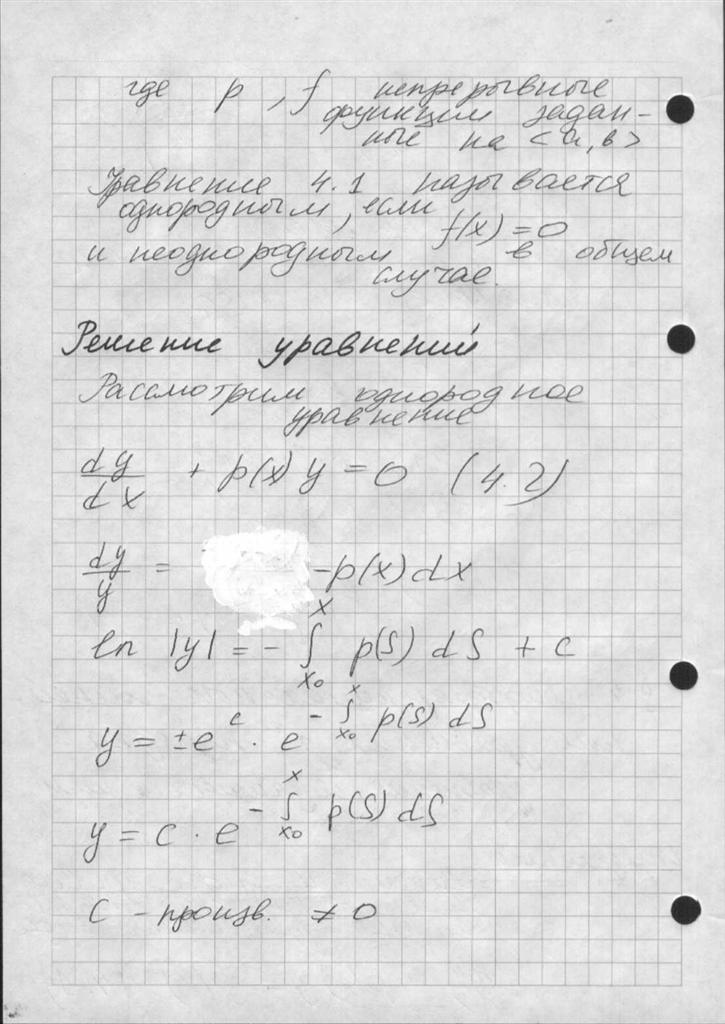 где p, f непрерывные
функции задан-
ные на <a, b>
Уравнение 4.1 называется
однородным, если
f(x) = 0
и неоднородным в общем
случае.
Решение уравнений
Рассмотрим однородное
уравнение
dy/dx + p(x) y = 0 (4.2)
dy/y = -p(x) dx
ln |y| = - ∫_{x₀}^{x} p(S) dS + c
y = ± e^c · e^{- ∫_{x₀}^{x} p(S) dS}
y = c · e^{- ∫_{x₀}^{x} p(S) dS}
C - произв. ≠ 0